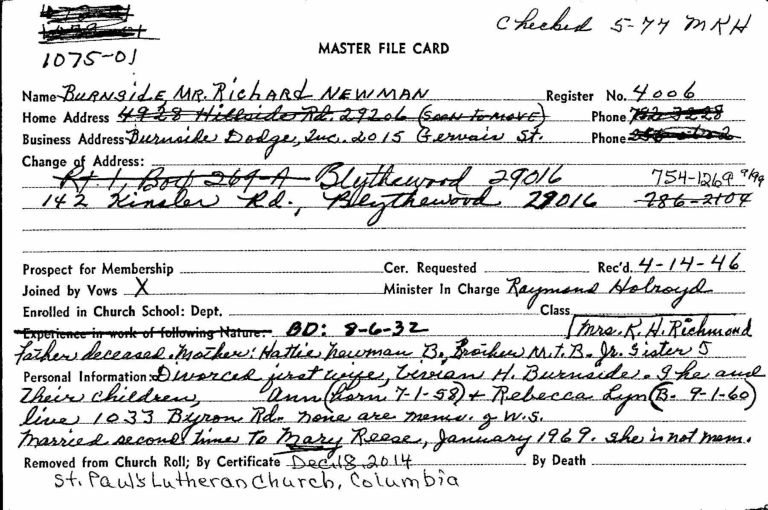 Checked 5-77 MKH
1075-01
MASTER FILE CARD
Name BURNSIDE, MR. RICHARD NEWMAN Register No. 4006
Home Address 4928 Hillside Rd. 29206 (SOON TO MOVE) Phone 782-3228
Business Address Burnside Dodge, Inc. 2015 Gervais St. Phone
Change of Address:
Rt 1, Box 269-A Blythewood 29016 754-1269 9/99
142 Kinsler Rd., Blythewood 29016 786-2104
Prospect for Membership Cer. Requested Rec'd. 4-14-46
Joined by Vows X Minister In Charge Raymond Holroyd
Enrolled in Church School: Dept. Class
Experience in work of following Nature: BD: 8-6-32 Mrs. R. H. Richmond
father deceased. Mother: Hattie Newman B. Brother M.T.B. Jr. Sister
Personal Information: Divorced first wife, Vivian H. Burnside. She and
their children, Ann (born 7-1-58) + Rebecca Lyn (B. 9-1-60)
live 1033 Byron Rd. None are mems. of W.S.
Married second time to Mary Reese, January 1969. She is not mem.
Removed from Church Roll; By Certificate Dec. 18, 2014 By Death
St. Paul's Lutheran Church, Columbia